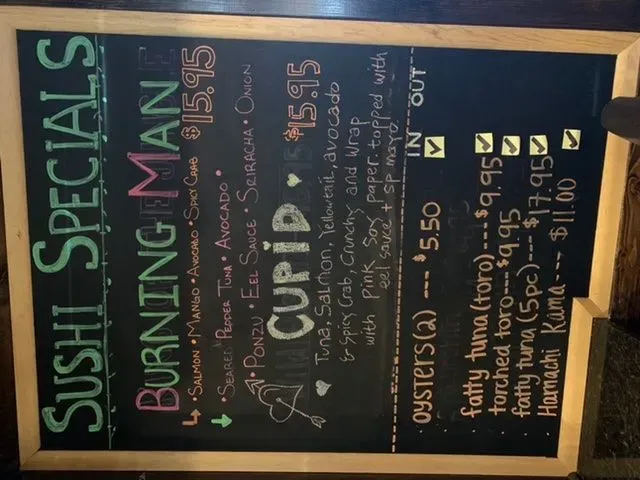 SUSHI SPECIALS
BURNING MAN $15.95
• SALMON • MANGO • AVOCADO • SPICY CRAB
• SEARED PEPPER TUNA • AVOCADO •
• PONZU • EEL SAUCE • SRIRACHA • ONION
CUPID ♥ $15.95
♥ Tuna, Salmon, Yellowtail, avocado
& Spicy Crab, Crunchy and Wrap
with Pink Soy paper. topped with
eel sauce + sp mayo.
IN OUT
• oysters(2) --- $5.50 ✓
• fatty tuna (toro) --- $9.95 ✓
• torched toro --- $9.95 ✓
• fatty tuna (5pc) --- $17.95 ✓
• Hamachi Kama --- $11.00 ✓